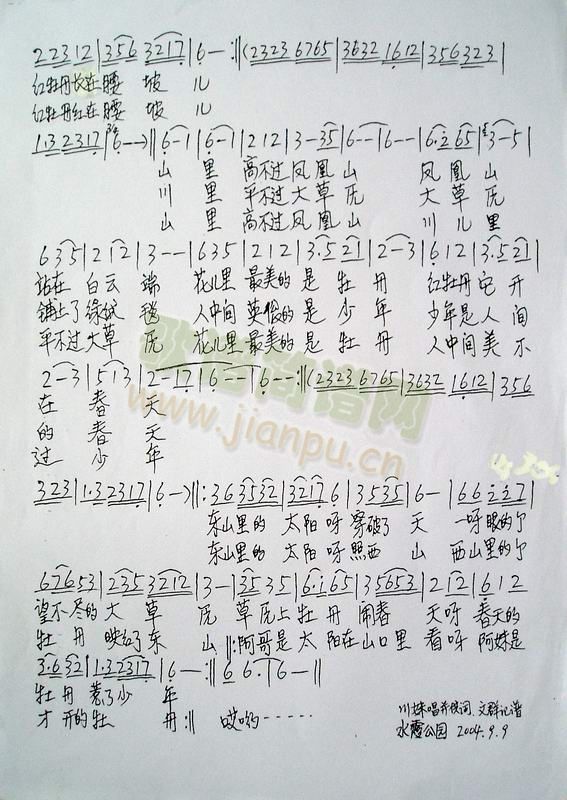 2 2 3 1 2 | 3 5 6 3 2 1 7 | 6 — :‖ ( 2 3 2 3 6 7 6 5 | 3 6 3 2 1 6 1 2 | 3 5 6 3 2 3 |
红牡丹长在腰 坡 儿
红牡丹红在腰 坡 儿
1·3 2 3 1 7 | 6 — ) ‖ 6 — 1 | 6 — 1 | 2 1 2 | 3 — 3 5 | 6 — — | 6 — — | 6·2 6 5 | 3 — 5 |
山 里 高不过凤凰山 凤凰山
川 里 平不过大草原 大草原
山 里 高不过凤凰山 川儿里
6 3 5 | 2 1 2 | 3 — — | 6 3 5 | 2 1 2 | 3·5 2 1 | 2 — 3 | 6 1 2 | 3·5 2 1 |
站在 白云 端 花儿里 最美的 是 牡丹 红牡丹它开
铺上了绿绒毯 人中间 英俊的是 少年 少年是人间
平不过大草原 花儿里 最美的 是 牡丹 人中间美不
2 — 3 | 5 1 3 | 2 — 1 7 | 6 — — | 6 — — :‖ ( 2 3 2 3 6 7 6 5 | 3 6 3 2 1 6 1 2 | 3 5 6
在 春 天
的 春 天
过 少 年
www.jianpu.cn
3 2 3 | 1·3 2 3 1 7 | 6 — ) ‖: 3 6 3 5 3 2 | 3 2 1 7 6 | 3 5 3 5 | 6 — | 6 6 2 2 7 |
东山里的 太阳呀 穿破了 天 一呀眼的个
东山里的 太阳呀 照西 山 西山里的个
6 7 6 5 3 | 2 3 5 3 2 1 2 | 3 — | 3 5 3 5 | 6·1 6 5 | 3 5 6 5 3 | 2 1 2 | 6 1 2
望不尽的 大 草 原 草原上 牡丹 闹春 天呀 春天的
牡 丹 映红了东 山 ‖: 阿哥是 太阳在山口里 看呀 阿妹是
3·6 3 2 | 1·3 2 3 1 7 | 6 — :‖ 6 6· | 6 — ‖
牡丹 惹了少 年
才开的牡 丹 :‖ 哎哟······
川妹唱并供词、文群记谱
水磨公园 2004.9.9